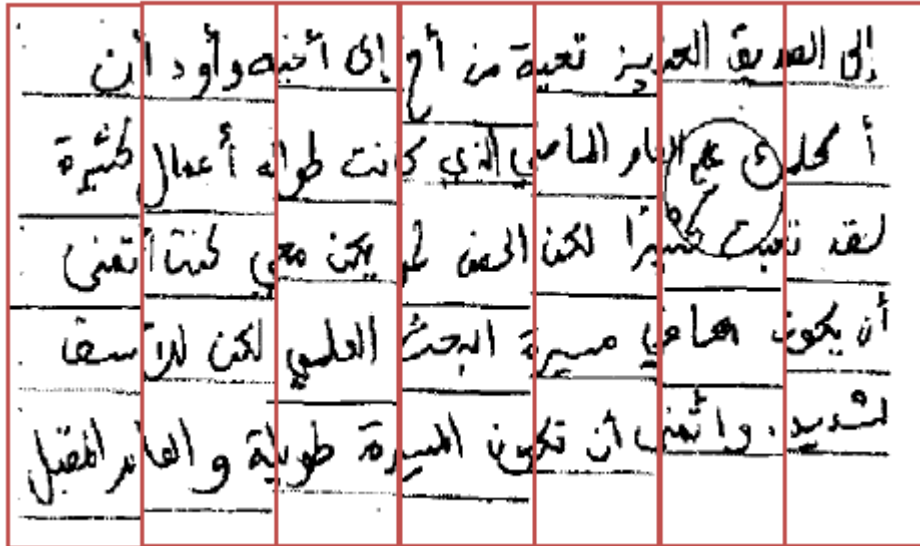 إلى الصديق العزيز تحية من أخ إلى أخيه وأود أن
أكلمك على العام الماضي الذي كانت طواله أعمال كثيرة
لقد تعبت كثيرًا لكن الحظ لم يكن معي كنت أتمنى
أن يكون هنا في مسيرة البحث العلمي لكن للأسف
لشديد. وأتمنى أن تكون المسيرة طويلة و العام المقبل